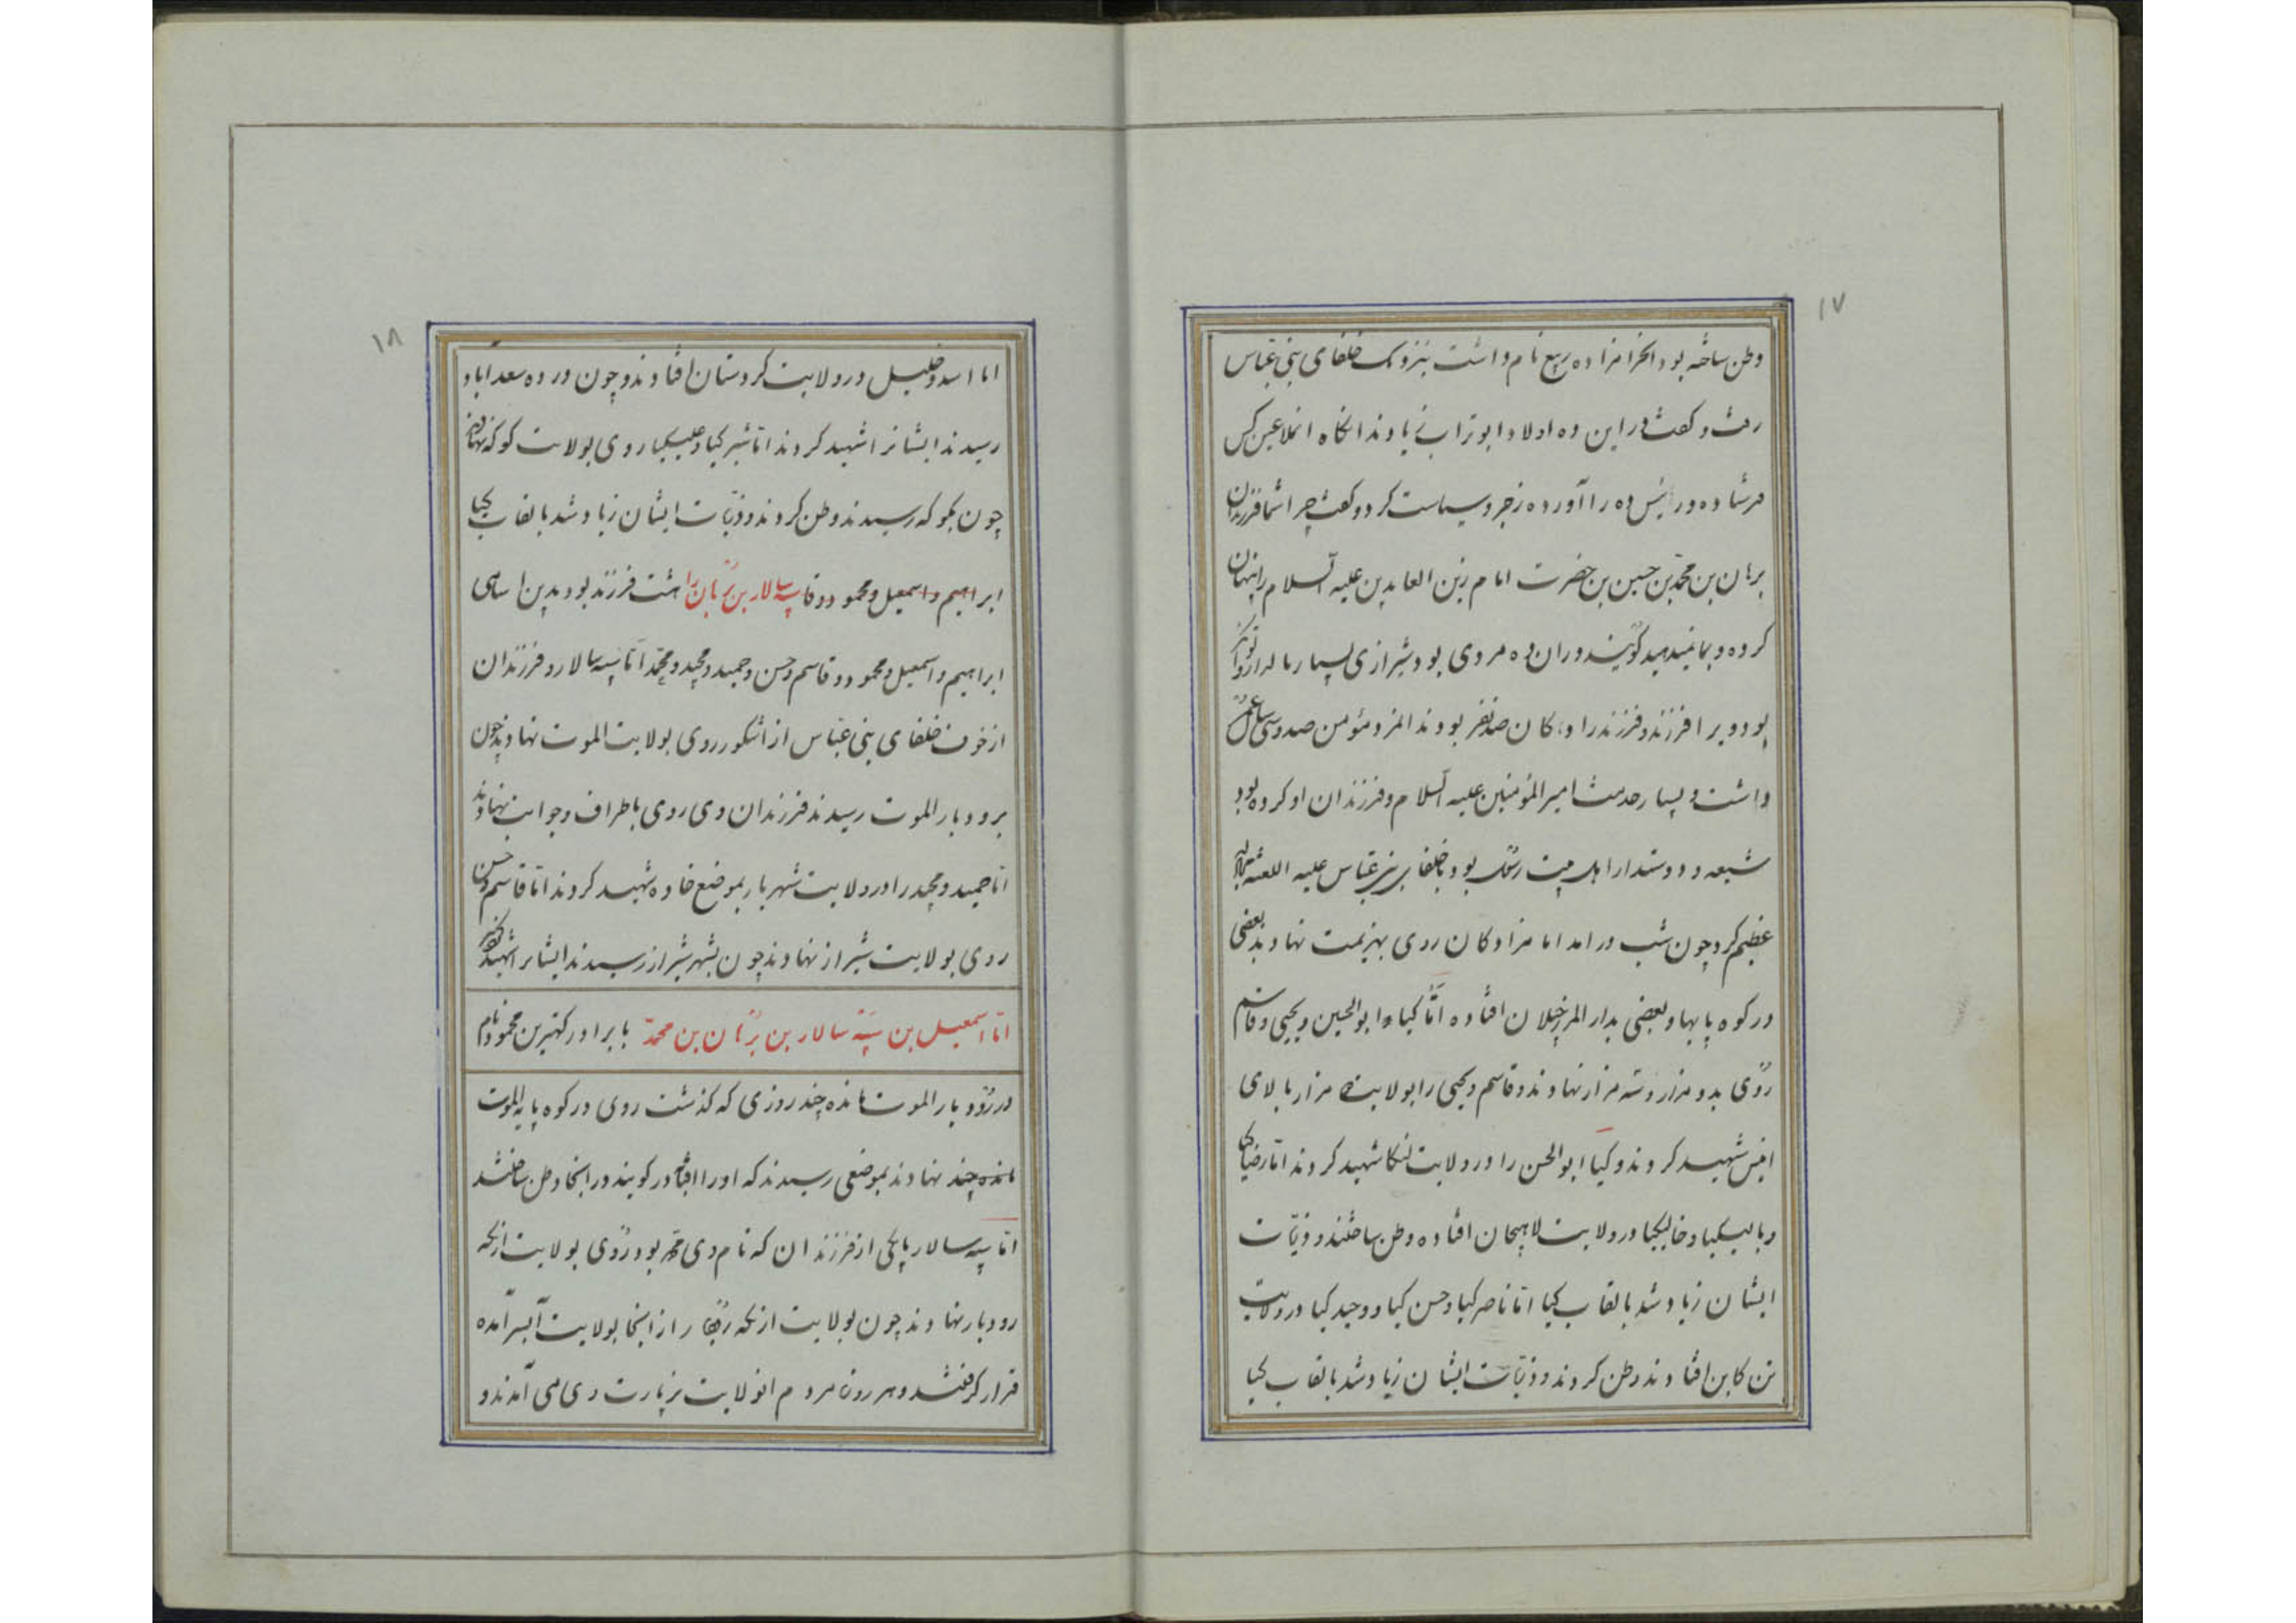 ۱۷
وطن ساخته بود آنحرامزاده ربیع نام داشت بنزدیک خلفای بنی عباس
رفت و گفت در این ده اولاد ابوتراب زیاوند آنگاه آنملاعین کس
فرستاده و رئیس ده را آورده زجر و سیاست کرد و گفت چرا شما فرزندان
برهان بن محمد بن حسین بن حضرت امام زین العابدین علیه السلام را پنهان
کرده و بما نمیدهید گویند در آن ده مردی بود شیرازی بسیار مالدار
بود و ویرا فرزند و فرزندزادگان صد نفر بودند المرد مؤمن صد و سی سال عمر
داشت و بسیار خدمت امیرالمؤمنین علیه السلام و فرزندان او کرده بود
شیعه و دوستدار اهل بیت رسول بود با خلفای بنی عباس علیه اللعنه
عظیم کرد چون شب درآمد امامزادگان روی بهزیمت نهادند بعضی
در کوه پایها و بعضی بدار المرز گیلان افتاده امّا کیا ابوالحسین و یحیی و قاسم
روی بدو هزار و سه هزار نهادند و قاسم و یحیی را بولایت هزار بالای
شهید کردند و کیا ابوالحسن را در ولایت لنکا شهید کردند امّا رضا کیا
و بالیکیا و خالیکیا در ولایت لاهیجان افتاده وطن ساختند و ذریّات
ایشان زیاد شد بالقاب کیا امّا ناصر کیا و حسن کیا و وحید کیا در ولایت
تنکابن افتادند وطن کردند و ذریّات ایشان زیاد شد بالقاب کیا
۱۸
امّا اسد و خلیل در ولایت کردستان افتادند و چون در ده سعدآباد
رسیدند ایشانرا شهید کردند امّا شیر کیا و علیکیا روی بولایت کوکه نهادند
چون بکوکه رسیدند وطن کردند و ذریّات ایشان زیاد شد بالقاب کیا
ابراهیم و اسمعیل و محمود و قا سپه سالار بن برهان را هشت فرزند بود بدین اسامی
ابراهیم و اسمعیل و محمود و قاسم و حسن و حمید و مجید و محمّد امّا سپه سالار و فرزندان
از خوف خلفای بنی عباس از اشکور روی بولایت الموت نهادند چون
برودبار الموت رسیدند فرزندان وی روی باطراف و جوانب نهادند
امّا حمید و مجید را در ولایت شهریار بموضع خاوه شهید کردند امّا قاسم و حسن
روی بولایت شیراز نهادند چون بشهر شیراز رسیدند ایشانرا شهید کردند
امّا اسمعیل بن سپه سالار بن برهان بن محمّد با برادر کهترین محمود نام
در رودبار الموت مانده چند روزی که گذشت روی در کوه پایه الموت
مانده چند نهادند بموضعی رسیدند که او را گویند در آنجا وطن ساختند
امّا سپه سالار با یکی از فرزندان که نام وی محمّد بود روی بولایت ازنکه
رودبار نهادند چون بولایت ازنکه از آنجا بولایت آمده
قرار گرفتند و هر روز مردم آنولایت بزیارت وی می آمدند و